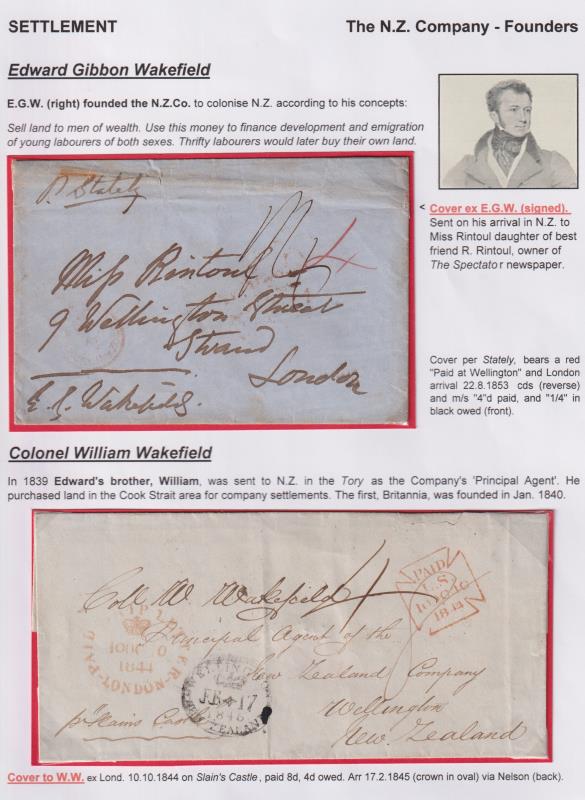 SETTLEMENT
The N.Z. Company - Founders
Edward Gibbon Wakefield
E.G.W. (right) founded the N.Z.Co. to colonise N.Z. according to his concepts:
Sell land to men of wealth. Use this money to finance development and emigration
of young labourers of both sexes. Thrifty labourers would later buy their own land.
p. Stately
4
Miss Rintoul
9 Wellington Street
Strand
London
E. G. Wakefield
< Cover ex E.G.W. (signed).
Sent on his arrival in N.Z. to
Miss Rintoul daughter of best
friend R. Rintoul, owner of
The Spectator newspaper.
Cover per Stately, bears a red
"Paid at Wellington" and London
arrival 22.8.1853 cds (reverse)
and m/s "4"d paid, and "1/4" in
black owed (front).
Colonel William Wakefield
In 1839 Edward's brother, William, was sent to N.Z. in the Tory as the Company's 'Principal Agent'. He
purchased land in the Cook Strait area for company settlements. The first, Britannia, was founded in Jan. 1840.
Coll. W. Wakefield
4
Principal Agent of the
New Zealand Company
Wellington
New Zealand
pr Slains Castle
PAID
LS
1844
PAID SHIP LETTER LONDON
10 OC 1844
FE 17
1845
Cover to W.W. ex Lond. 10.10.1844 on Slain's Castle, paid 8d, 4d owed. Arr 17.2.1845 (crown in oval) via Nelson (back).